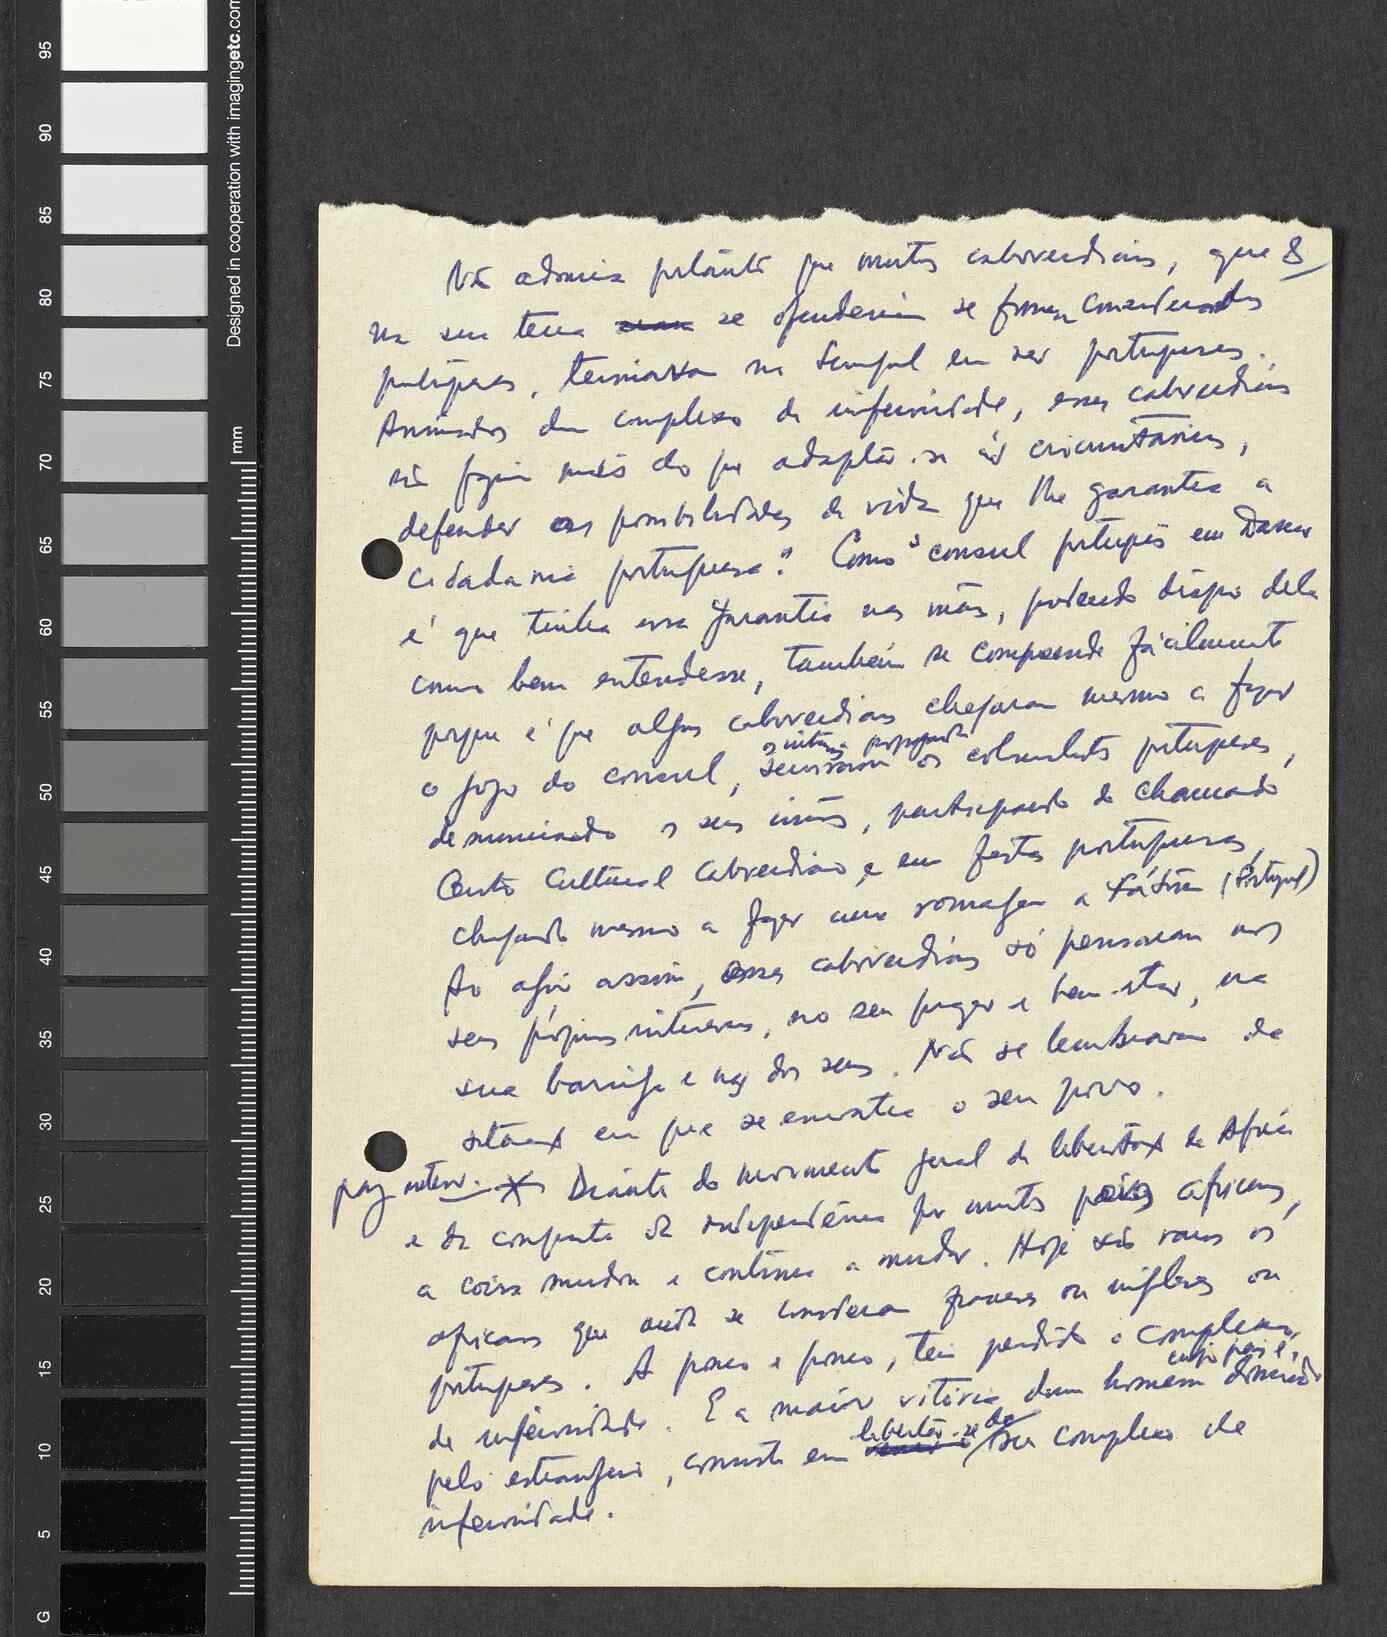 Designed in cooperation with imagingetc.com
mm
95
90
85
80
75
70
65
60
55
50
45
40
35
30
25
20
15
10
5
G
Não admira portanto que muitos caboverdianos, que 8
na sua terra se ofenderiam se fossem considerados
portugueses, teimavam no Senegal em ser portugueses.
Animados dum complexo de inferioridade, esses caboverdianos
não fazem mais do que adaptar-se às circunstâncias,
defender as possibilidades de vida que lhe garantia a
cidadania portuguesa. Como o consul português em Dakar
é que tinha essa garantia nas mãos, podendo dispor dela
como bem entendesse, também se compreende fàcilmente
porque é que alguns caboverdianos chegaram mesmo a fazer
o jogo do consul, serviram os colonialistas portugueses,
denunciando os seus irmãos, participando do chamado
Centro Cultural Caboverdiano, e em festas portuguesas,
chegando mesmo a fazer uma romagem a Fátima (Portugal)
Ao agir assim, esses caboverdianos só pensavam nos
seus próprios interesses, no seu prazer e bem-estar, na
sua barriga e na dos seus. Não se lembravam da
situação em que se encontra o seu povo.
Diante do movimento geral de libertação da África
e da conquista da independência por muitos países africanos,
a coisa mudou e continua a mudar. Hoje são raros os
africanos que ainda se consideram franceses ou ingleses ou
portugueses. A pouco e pouco, tem perdido o complexo
de inferioridade. E a maior vitória dum homem cujo país é dominado
pelo estrangeiro, consiste em libertar-se do seu complexo de
inferioridade.